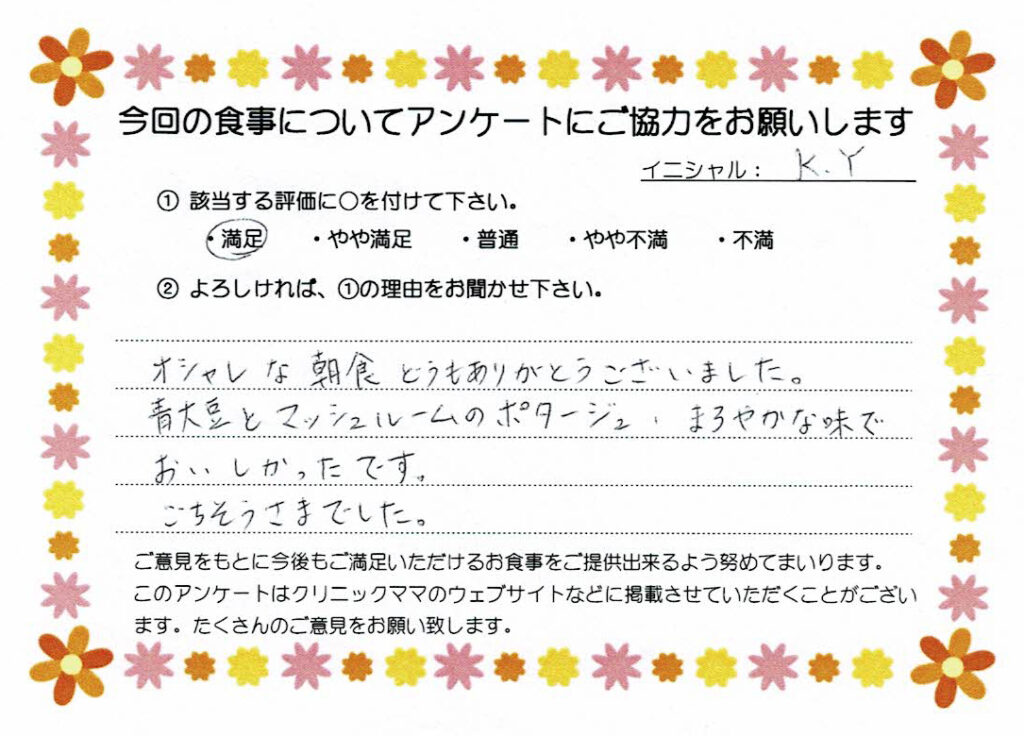 今回の食事についてアンケートにご協力をお願いします
イニシャル： K.Y
① 該当する評価に○を付けて下さい。
・満足 ・やや満足 ・普通 ・やや不満 ・不満
② よろしければ、①の理由をお聞かせ下さい。
オシャレな朝食どうもありがとうございました。
青大豆とマッシュルームのポタージュ、まろやかな味で
おいしかったです。
ごちそうさまでした。
ご意見をもとに今後もご満足いただけるお食事をご提供出来るよう努めてまいります。
このアンケートはクリニックママのウェブサイトなどに掲載させていただくことがござい
ます。たくさんのご意見をお願い致します。